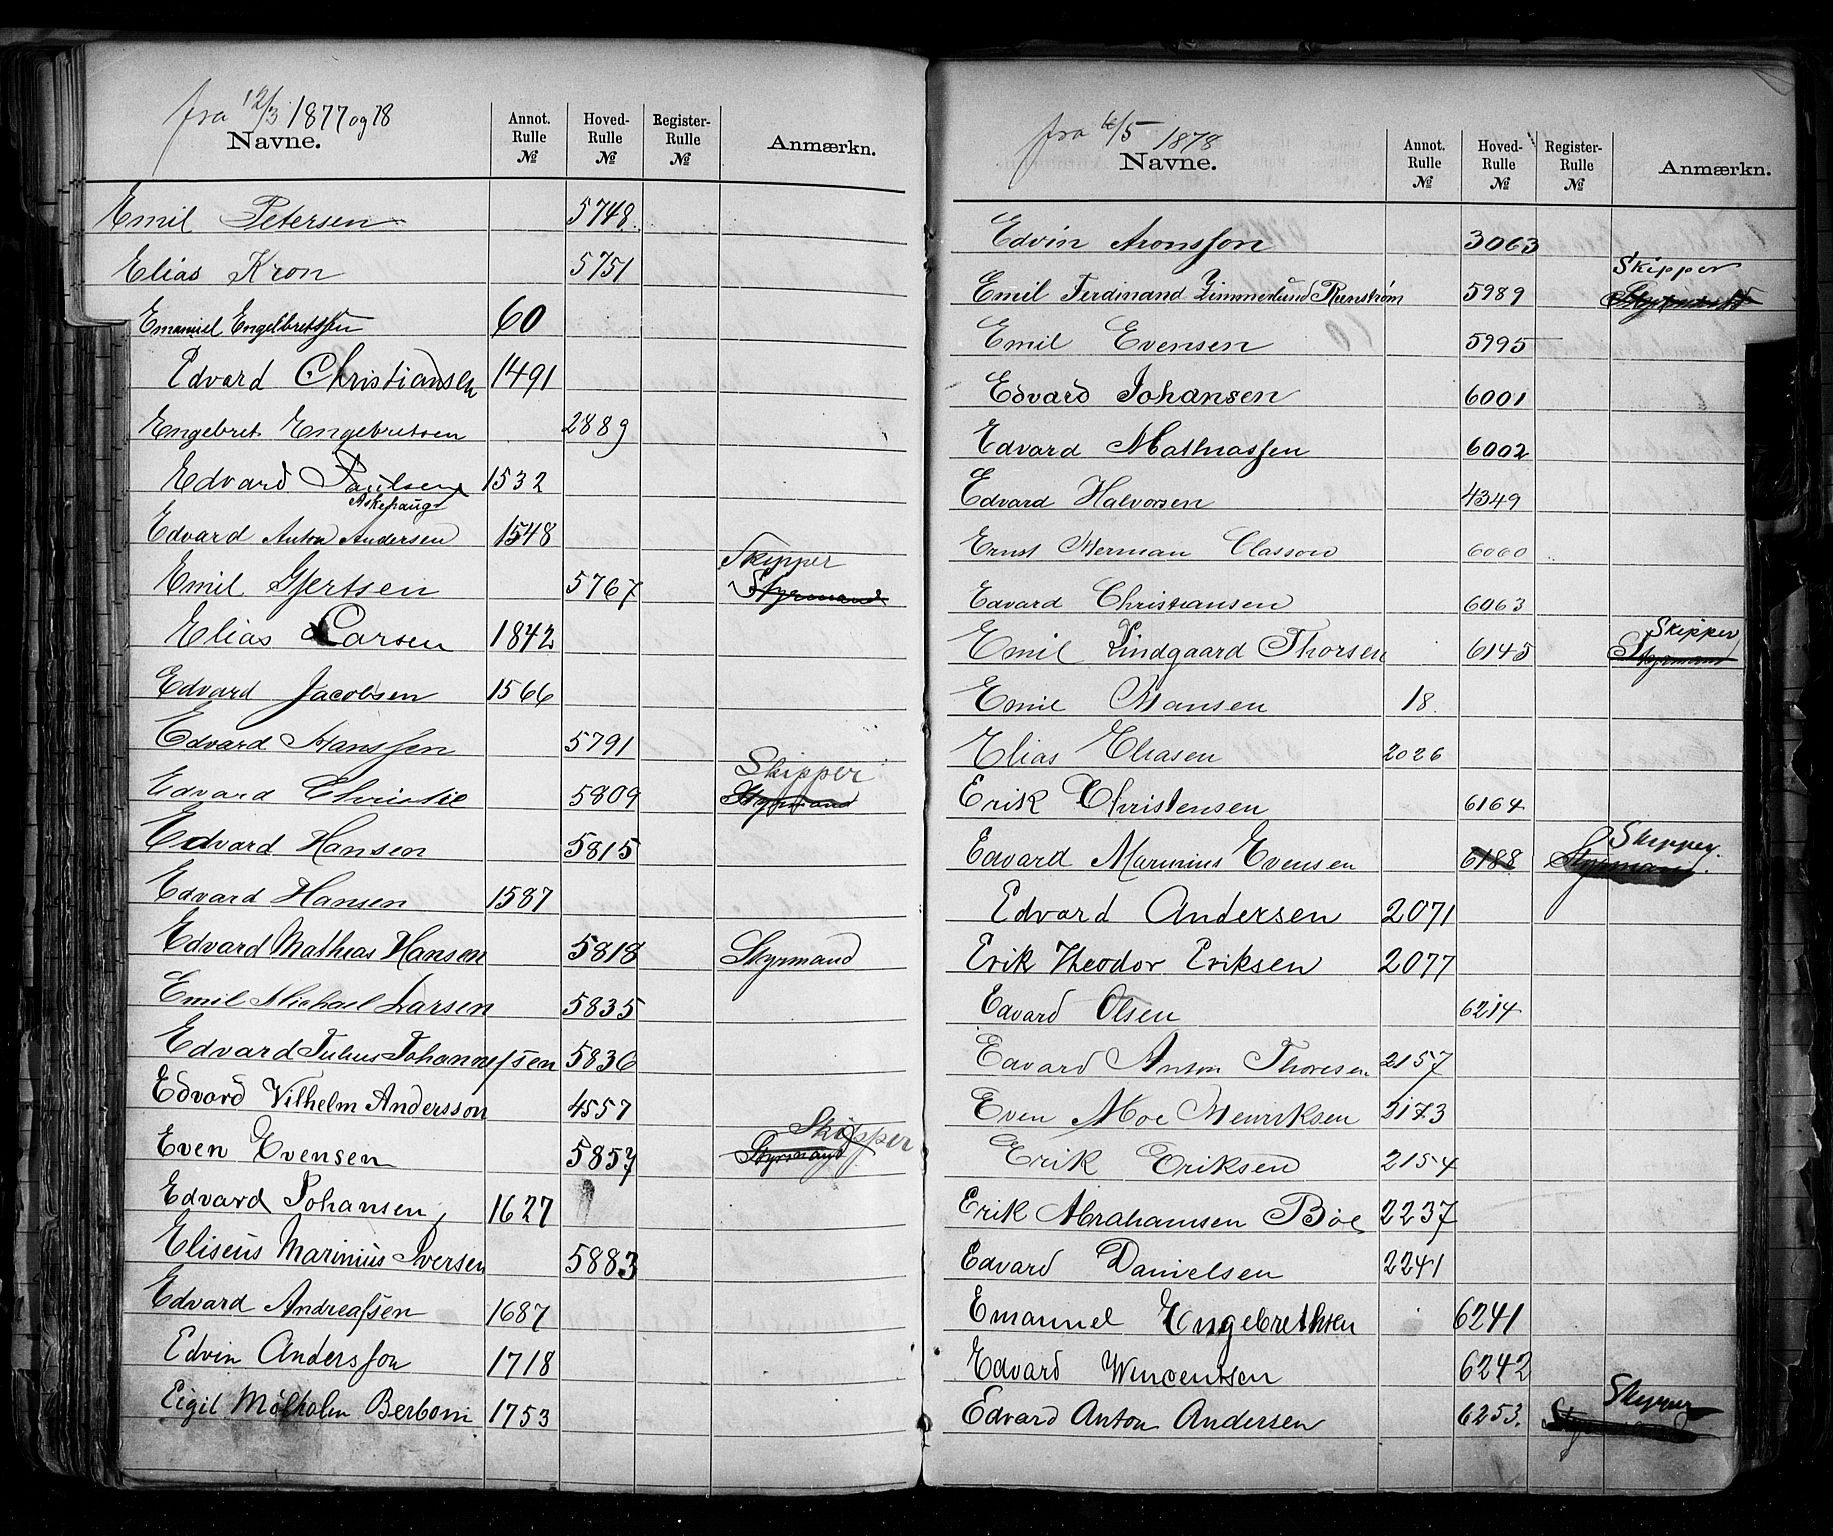 fra 12/3 1877 og 78
Navne. Annot. Rulle № Hoved-Rulle № Register-Rulle № Anmærkn.
Emil Petersen 5748.
Elias Kron 5751
Emanuel Engelbretssen 60
Edvard Christiansen 1491
Engebret Engebretsen 2889
Edvard Paulsen 1532
Askehaug
Edvard Anton Andersen 1548
Skipper
Emil Gjertsen 5767 Styrmand
Elias Larsen 1842
Edvard Jacobsen 1566
Edvard Hanssen 5791
Skipper
Edvard Christie 5809 Styrmand
Edvard Hansen 5815
Edvard Hansen 1587
Edvard Mathias Hansen 5818 Styrmand
Emil Michael Larsen 5835
Edvard Julius Johannessen 5836
Edvard Vilhelm Andersson 4557
Skipper
Even Evensen 5857 Styrmand
Edvard Johansen, 1627
Eliseus Marinius Iversen 5883
Edvard Andreassen 1687
Edvin Andersson 1718
Eigil Mølholm Berbom 1753
fra 6/5 1878
Navne. Annot. Rulle № Hoved-Rulle № Register-Rulle № Anmærkn.
Edvin Aronsson 3063
Skipper
Emil Ferdinand Zimmerlund Renstrøm 5989 Styrmand
Emil Evensen 5995
Edvard Johansen 6001
Edvard Mathiassen 6002
Edvard Halvorsen 4349
Ernst Herman Classon 6060
Edvard Christiansen 6063
Skipper
Emil Lindgaard Thorsen 6145 Styrmand
Emil Hansen 18.
Elias Eliasen 2026
Erik Christensen 6164
Skipper.
Edvard Marinius Evensen 6188 Styrmand.
Edvard Andersen 2071
Erik Theodor Eriksen 2077
Edvard Olsen 6214
Edvard Anton Thoresen 2157
Even Moe Henriksen 2173
Erik Eriksen 2154
Erik Abrahamsen Bøe 2237
Edvard Danielsen 2241
Emanuel Engebrethsen 6241
Edvard Wincentsen 6242
Skipper
Edvard Anton Andersen 6253. Styrmand